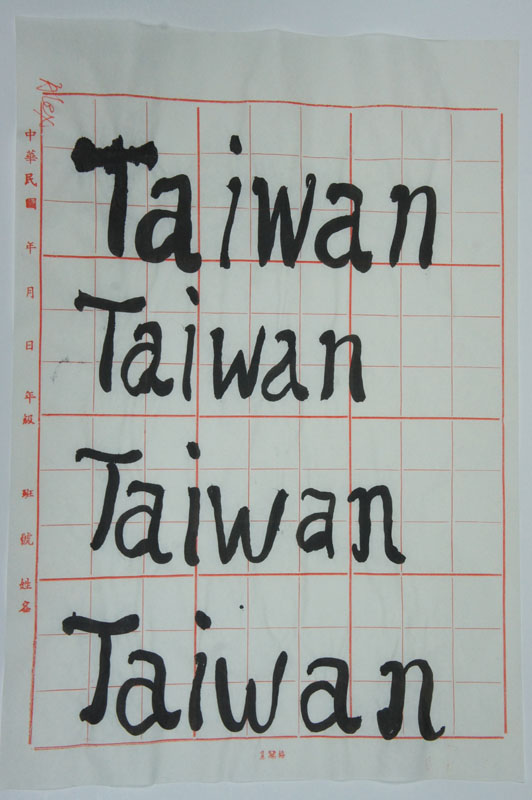 Alex
中華民國 年 月 日 年級 班 號 姓名
Taiwan
Taiwan
Taiwan
Taiwan